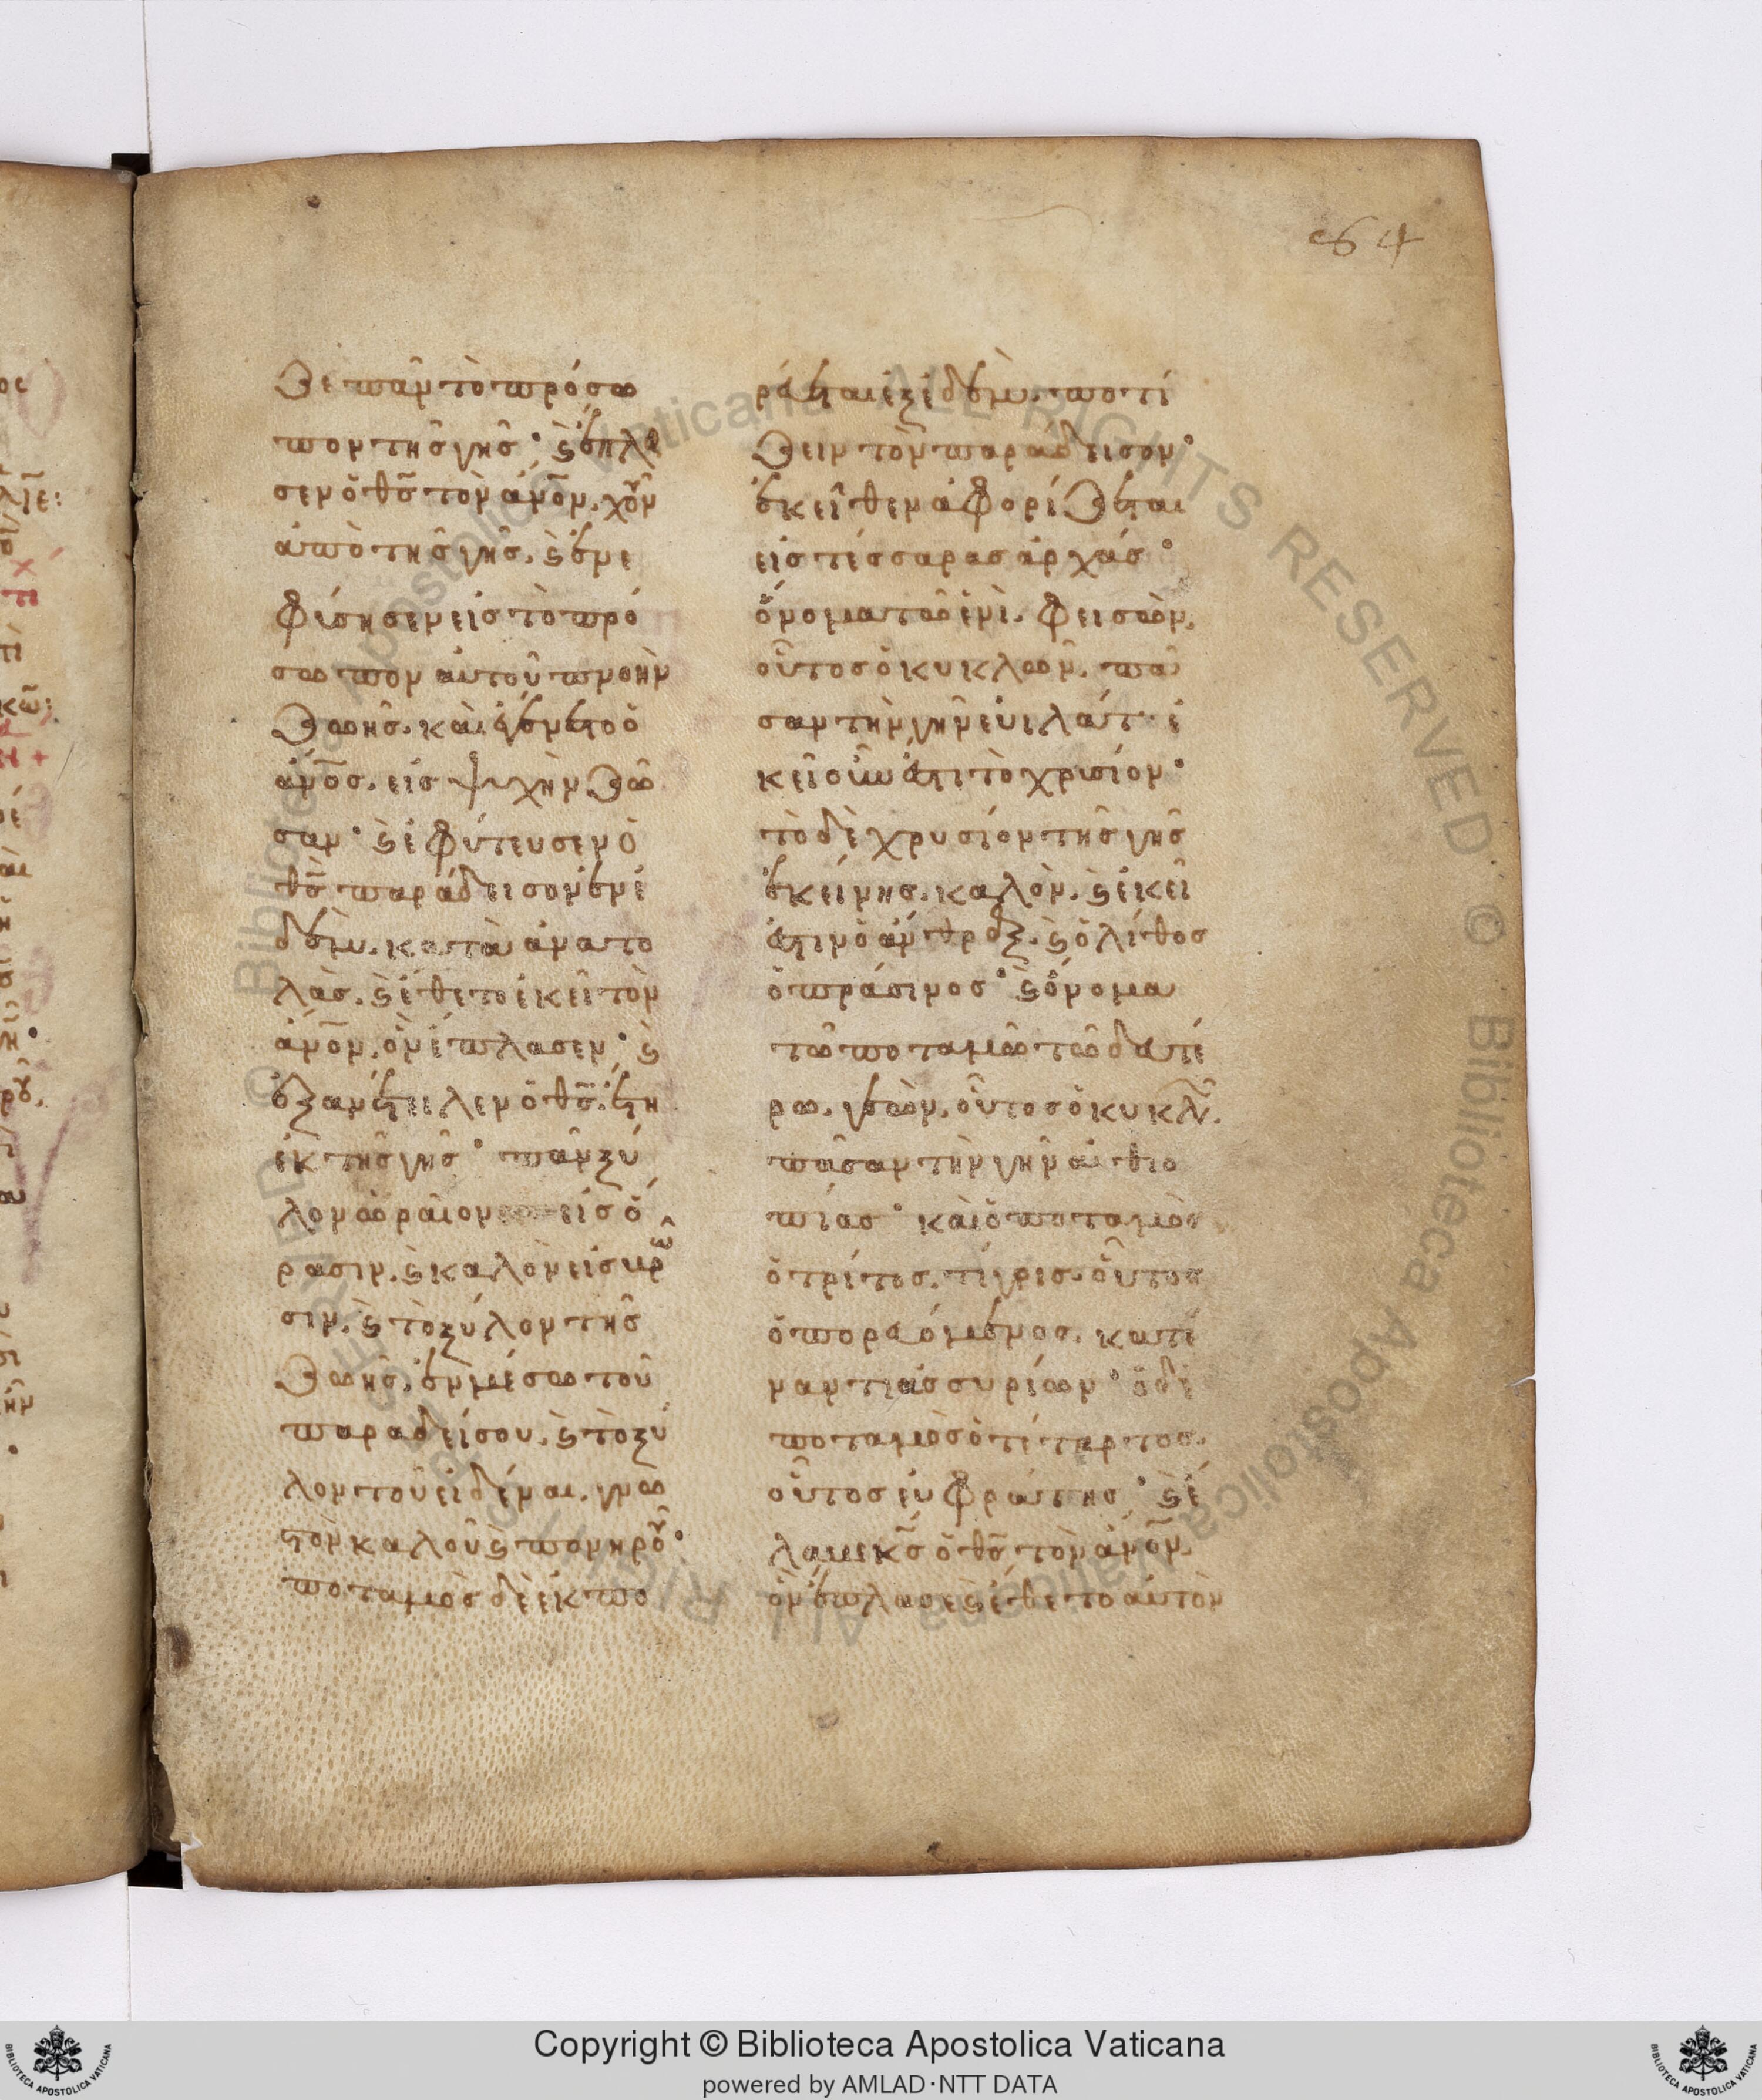 64
ζε πᾶν τὸ πρόσω
πον τῆς γῆς· ϗ ἔπλα
σεν ὁ θ̅ς̅ τὸν ἄν̅ο̅ν̅, χοῦν
ἀπὸ τῆς γῆς, ϗ ἐνε
φύσησεν εἰς τὸ πρό
σωπον αὐτοῦ πνοὴν
ζωῆς. καὶ ἐγένετο ὁ
ἄν̅ο̅ς̅, εἰς ψυχὴν ζῶ
σαν· ϗ ἐφύτευσεν ὁ
θ̅ς̅ παράδεισον ἐν ἐ
δὲμ, κατὰ ἀνατο
λὰς, ϗ ἔθετο ἐκεῖ τὸν
ἄν̅ο̅ν̅, ὃν ἔπλασεν· ϗ
ἐξανέτειλεν ὁ θ̅ς̅ ἔτι
ἐκ τῆς γῆς· πᾶν ξύ
λον ὡραῖον εἰς ὅ
ρασιν, ϗ καλὸν εἰς βρῶ
σιν, ϗ τὸ ξύλον τῆς
ζωῆς, ἐν μέσω τοῦ
παραδείσου, ϗ τὸ ξύ
λον τοῦ εἰδέναι, γνω
στὸν καλοῦ ϗ πονηροῦ·
ποταμὸς δὲ ἐκπο
ρεύεται ἐξ ἐδὲμ, ποτί
ζειν τὸν παράδεισον·
ἐκεῖθεν ἀφορίζεται
εἰς τέσσαρας ἀρχάς·
ὄνομα τῶ ἑνὶ, φεισὼν,
οὗτος ὁ κυκλῶν, πᾶ
σαν τὴν γῆν εὐιλάτ· ἐ
κεῖ οὗ ἐστι τὸ χρυσίον·
τὸ δὲ χρυσίον τῆς γῆς
ἐκείνης, καλὸν, ϗ ἐκεῖ
ἐστιν ὁ ἄνθραξ, ϗ ὁ λίθος
ὁ πράσινος· ϗ ὄνομα
τῶ ποταμῶ τῶ δευτέ
ρω, γεὼν, οὗτος ὁ κυκλῶν,
πᾶσαν τὴν γῆν αἰθιο
πίας· καὶ ὁ ποταμὸς
ὁ τρίτος, τίγρις, οὗτος
ὁ πορευόμενος, κατέ
ναντι ἀσσυρίων· ὁ δὲ
ποταμὸς ὁ τέταρτος,
οὗτος εὐφράτης· ϗ ἔ
λαβεν κ̅ς̅ ὁ θ̅ς̅ τὸν ἄν̅ο̅ν̅,
ὃν ἔπλασε ϗ ἔθετο αὐτὸν
Copyright © Biblioteca Apostolica Vaticana
powered by AMLAD·NTT DATA